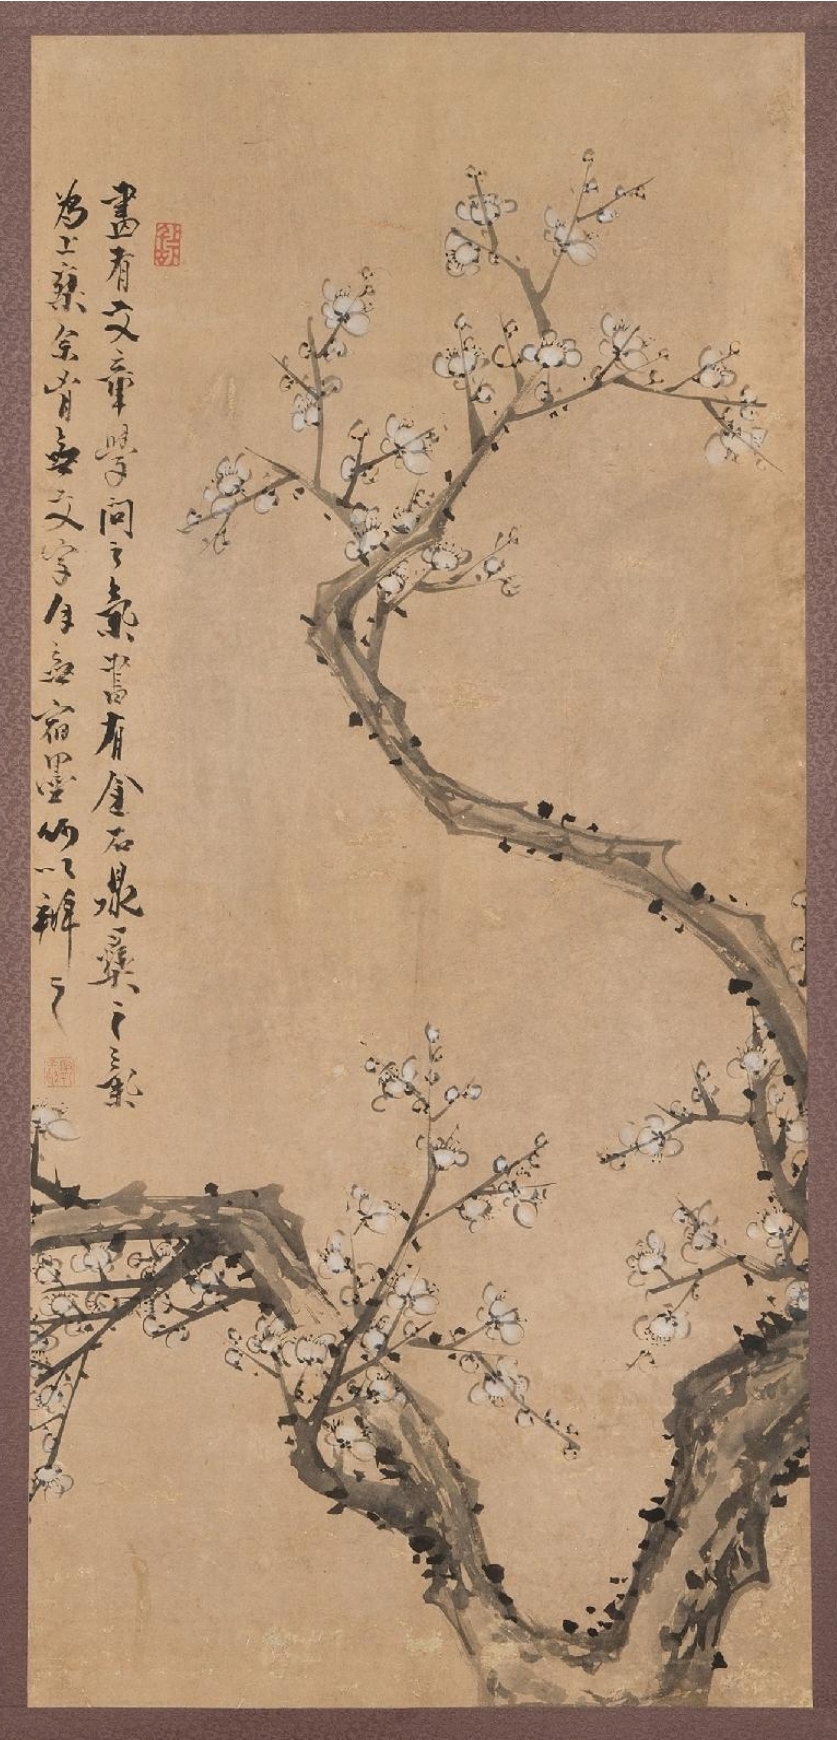 畫有文章學問之氣書有金石鼎彝之氣
為上乘余胷無文字無宿墨何以辦之